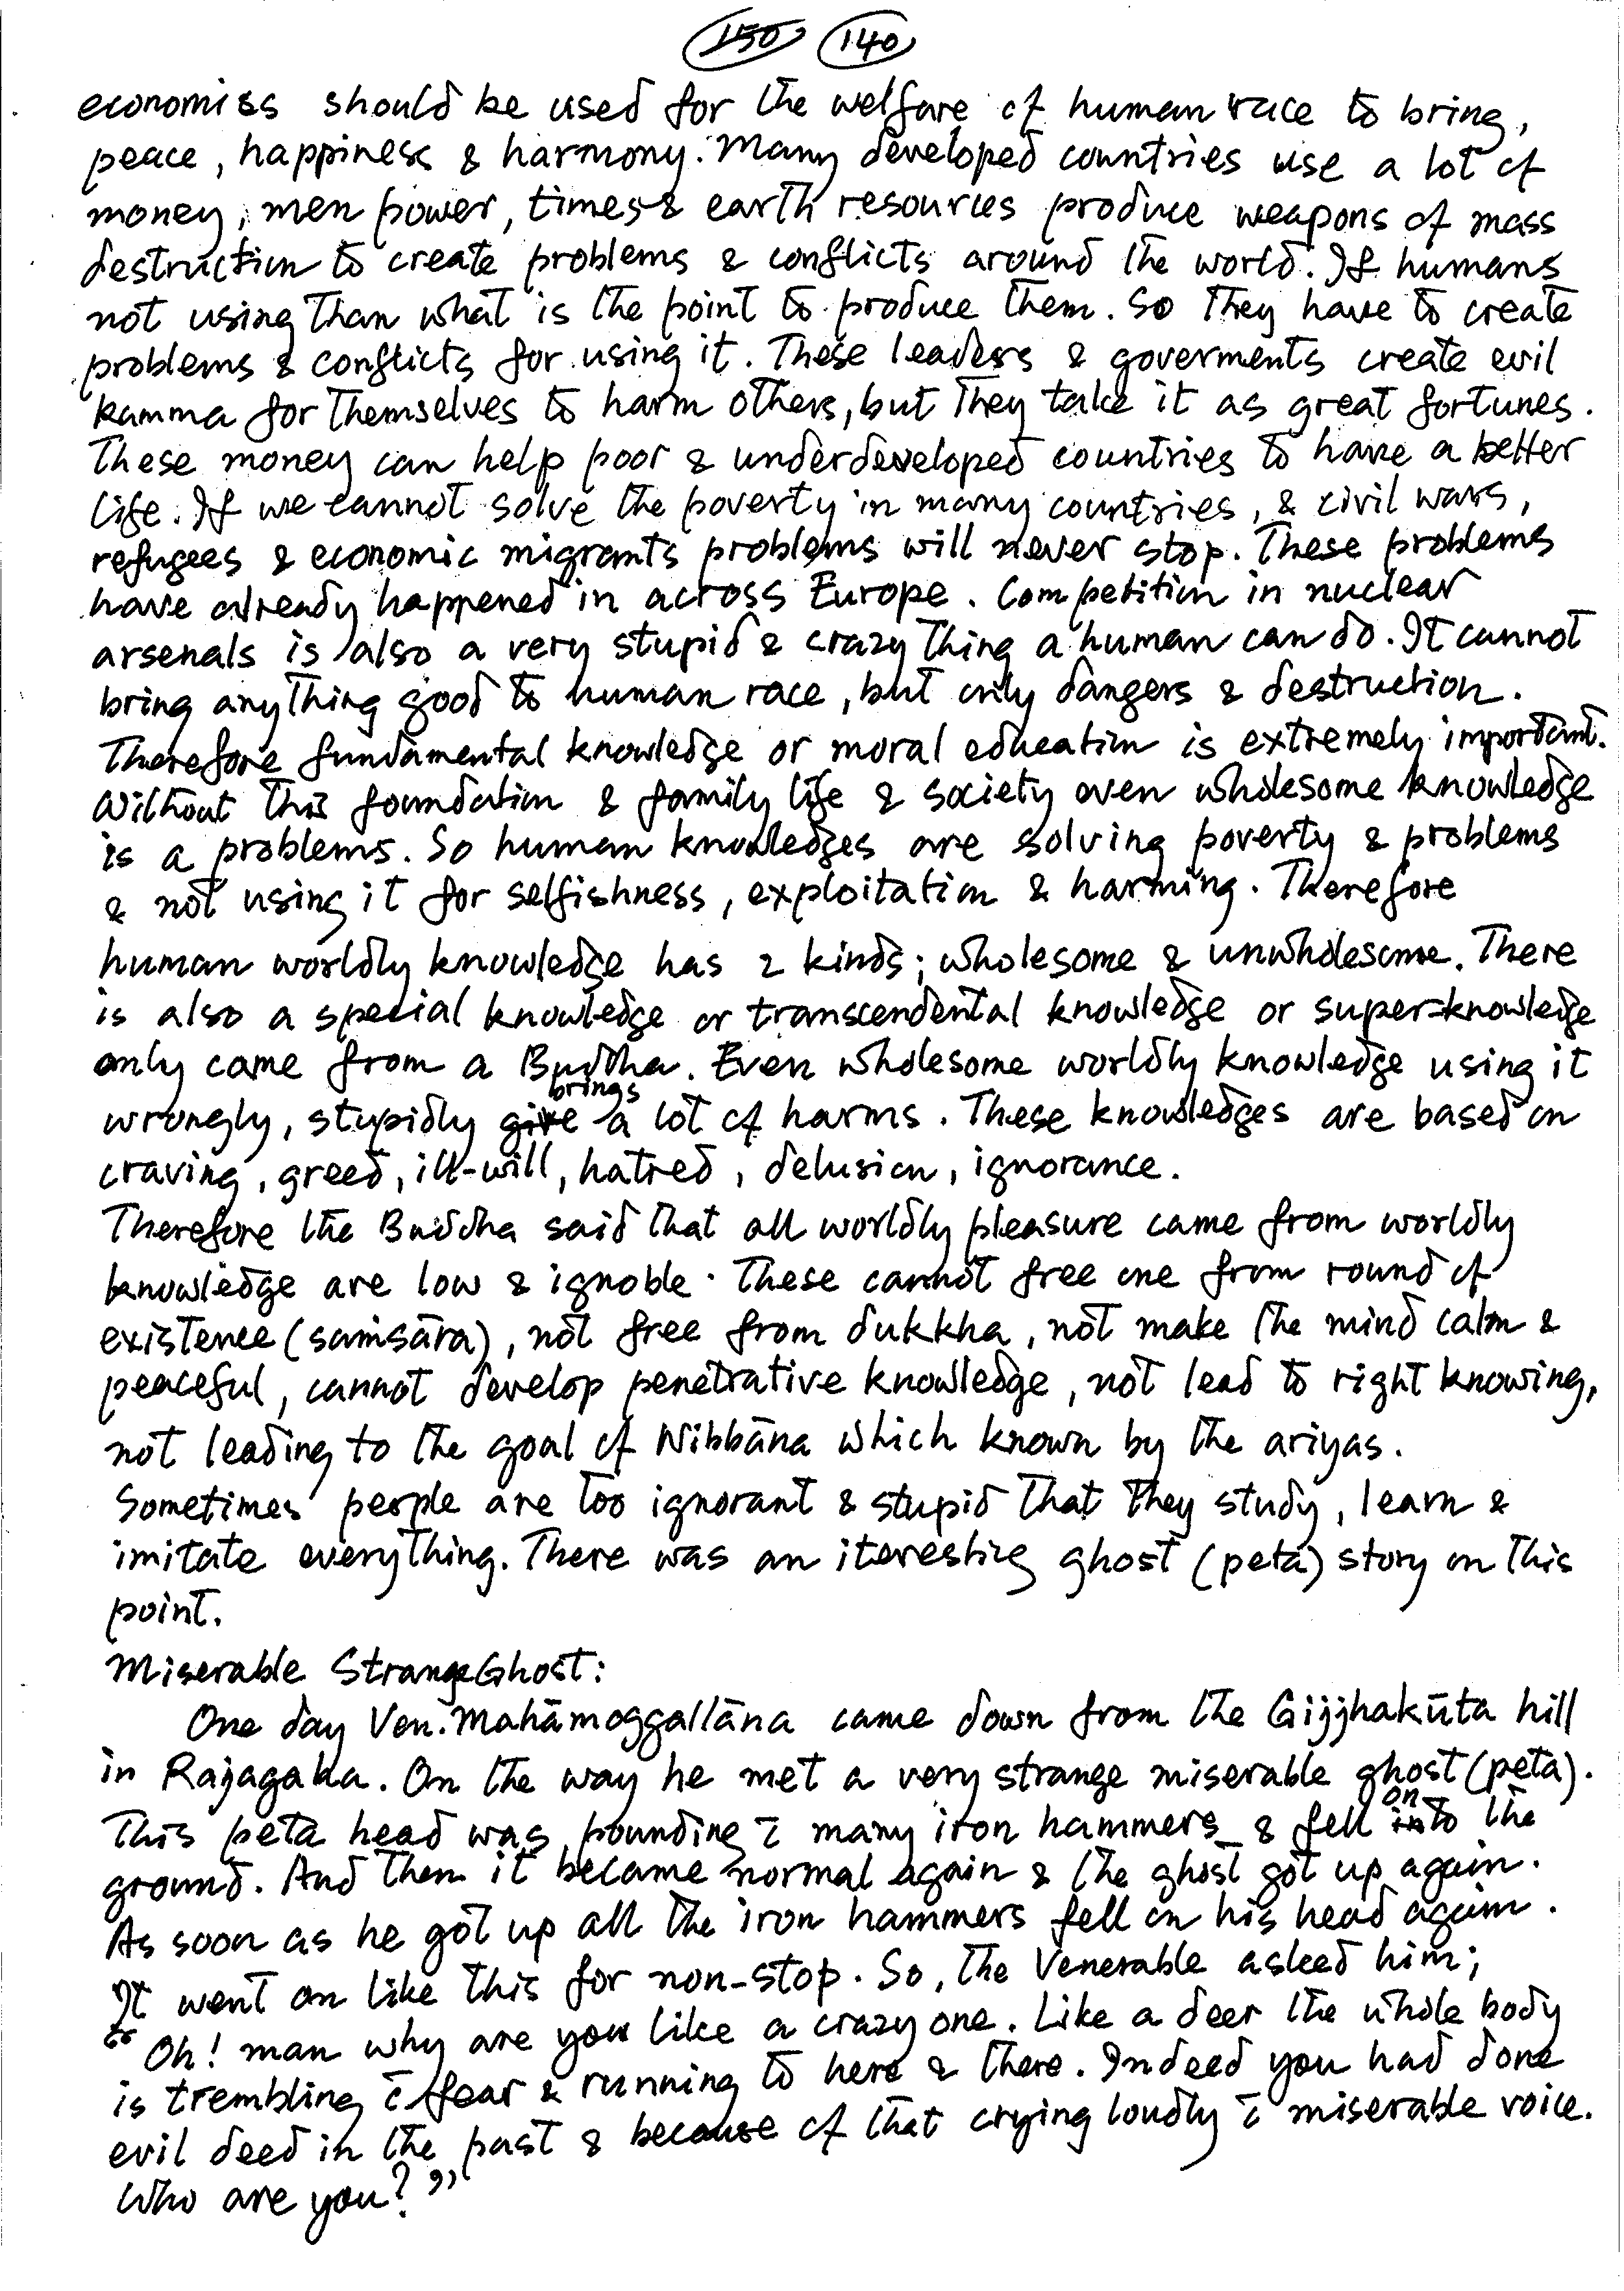 150 140
economiss should be used for the welfare of human race to bring,
peace, happiness & harmony. Many developed countries use a lot of
money, men power, times & earth resources produce weapons of mass
destruction to create problems & conflicts around the world. If humans
not using than what is the point to produce them. So they have to create
problems & conflicts for using it. These leaders & goverments create evil
kamma for themselves to harm others, but they take it as great fortunes.
These money can help poor & underdeveloped countries to have a better
life. If we cannot solve the poverty in many countries, & civil wars,
refugees & economic migrants problems will never stop. These problems
have already happened in across Europe. Competition in nuclear
arsenals is also a very stupid & crazy thing a human can do. It cannot
bring anything good to human race, but only dangers & destruction.
Therefore fundamental knowledge or moral education is extremely important.
Without this foundation & family life & society even wholesome knowledge
is a problems. So human knowledges are solving poverty & problems
& not using it for selfishness, exploitation & harming. Therefore
human worldly knowledge has 2 kinds; wholesome & unwholesome. There
is also a special knowledge or transcendental knowledge or super-knowledge
only came from a Buddha. Even wholesome worldly knowledge using it
wrongly, stupidly give brings a lot of harms. These knowledges are based on
craving, greed, ill-will, hatred, delusion, ignorance.
Therefore the Buddha said that all worldly pleasure came from worldly
knowledge are low & ignoble. These cannot free one from round of
existence (saṁsāra), not free from dukkha, not make the mind calm &
peaceful, cannot develop penetrative knowledge, not lead to right knowing,
not leading to the goal of Nibbāna which known by the ariyas.
Sometimes people are too ignorant & stupid that they study, learn &
imitate everything. There was an iteresting ghost (peta) story on this
point.
Miserable Strange Ghost:
One day Ven. Mahāmoggallāna came down from the Gijjhakūta hill
in Rajagaha. On the way he met a very strange miserable ghost (peta).
This peta head was pounding c̄ many iron hammers & fell into onto the
ground. And then it became normal again & the ghost got up again.
As soon as he got up all the iron hammers fell on his head again.
It went on like this for non-stop. So, the Venerable asked him;
"Oh! man why are you like a crazy one. Like a deer the whole body
is trembling c̄ fear & running to here & there. Indeed you had done
evil deed in the past & because of that crying loudly c̄ miserable voice.
Who are you?"